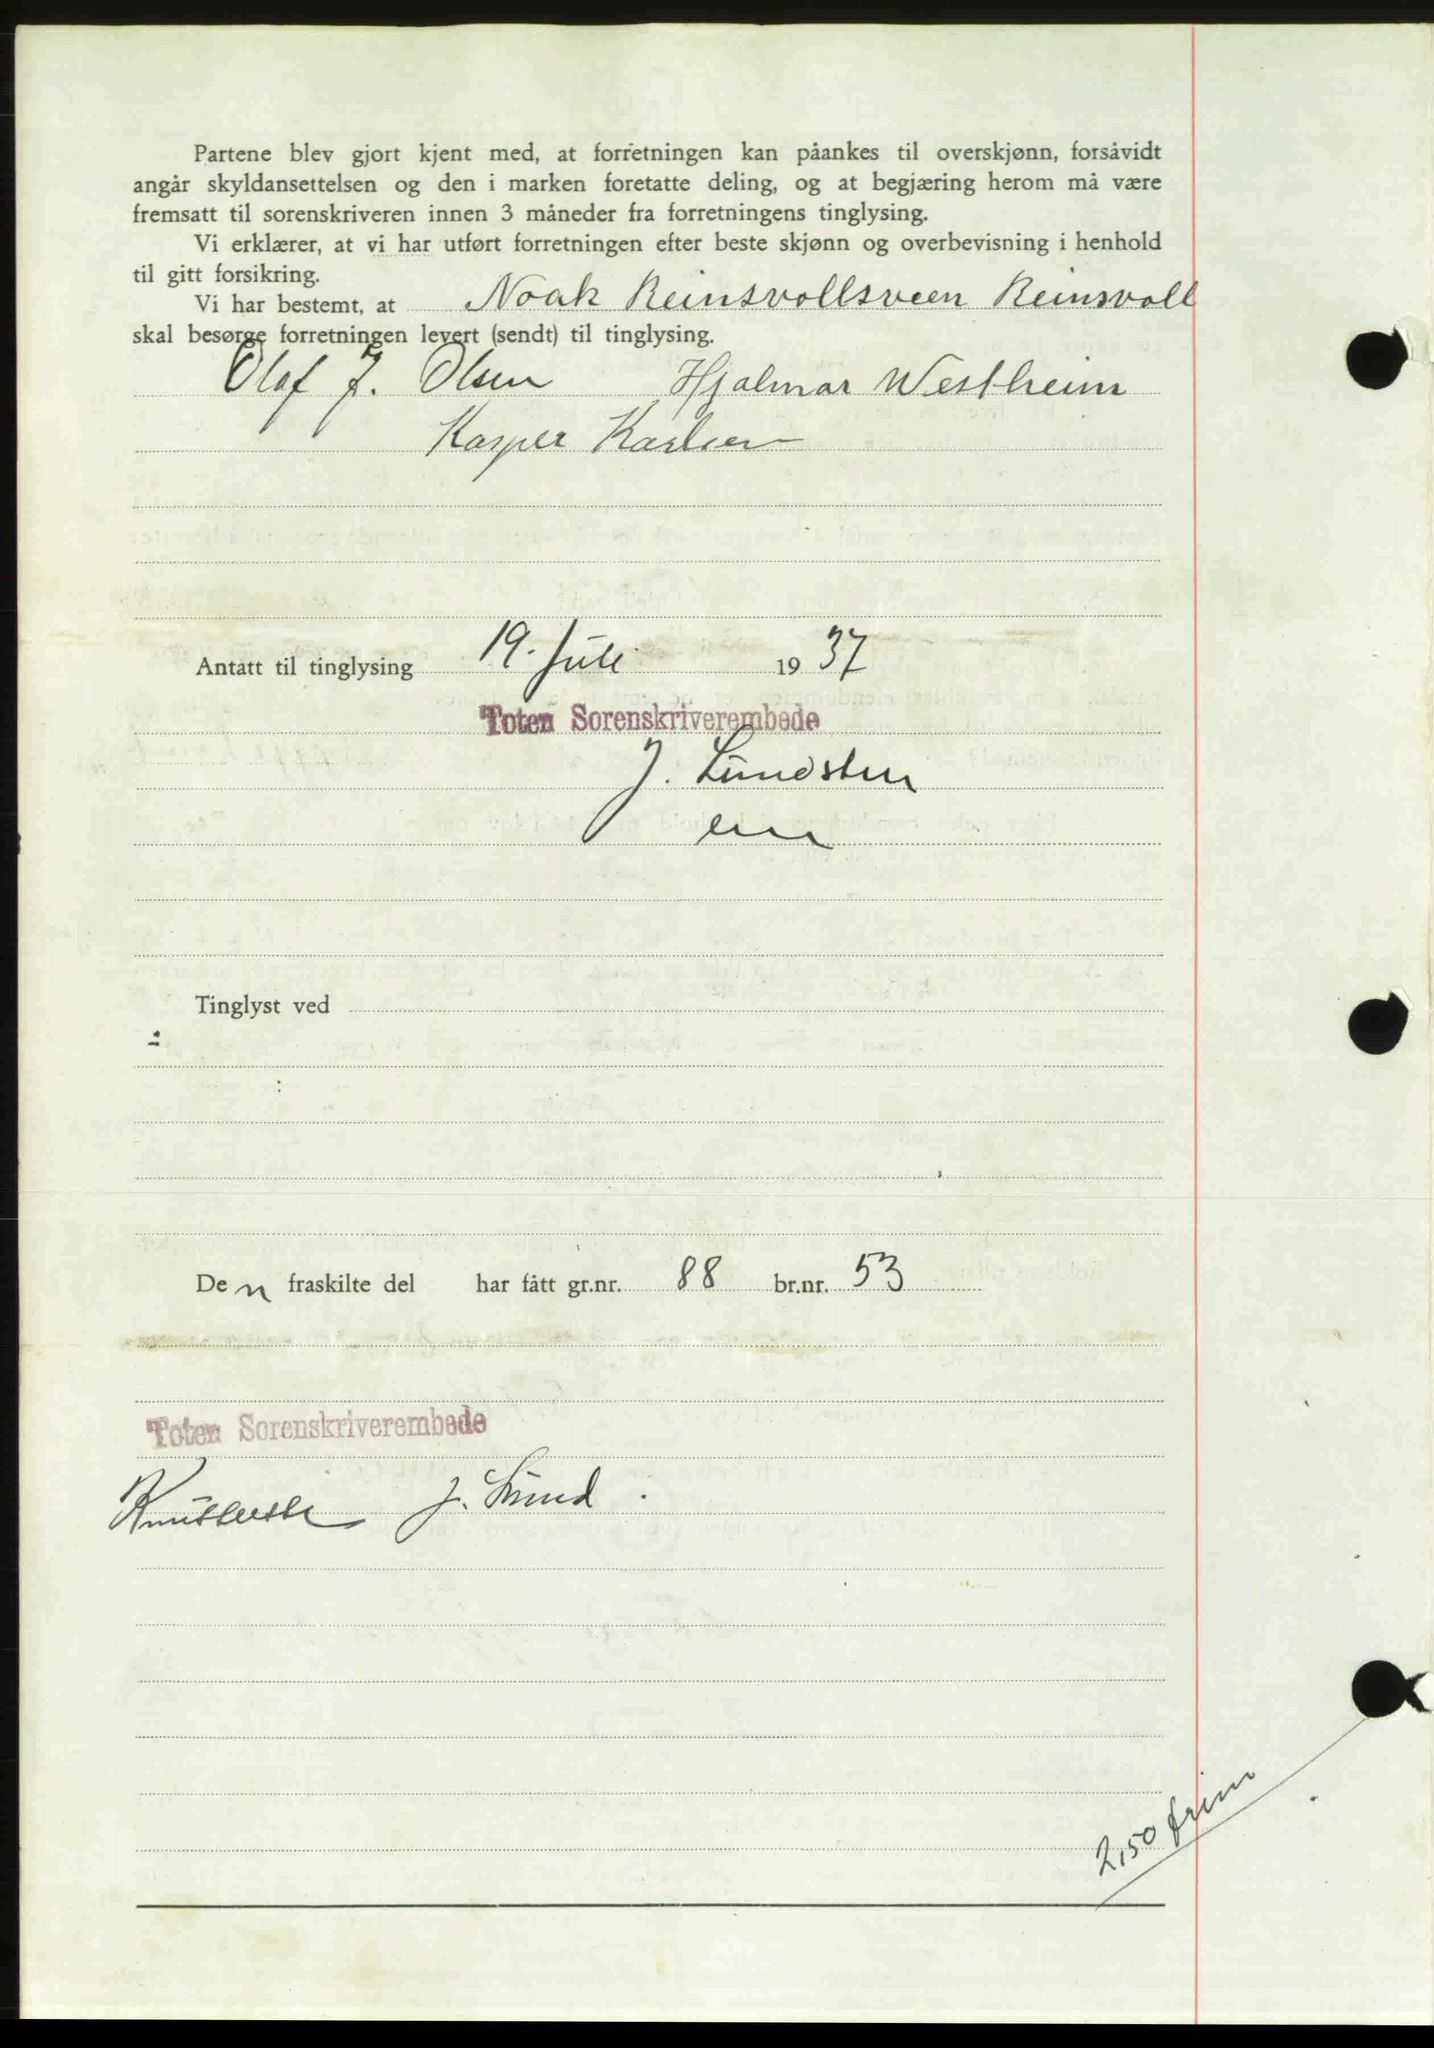 Partene blev gjort kjent med, at forretningen kan påankes til overskjønn, forsåvidt
angår skyldansettelsen og den i marken foretatte deling, og at begjæring herom må være
fremsatt til sorenskriveren innen 3 måneder fra forretningens tinglysing.
Vi erklærer, at vi har utført forretningen efter beste skjønn og overbevisning i henhold
til gitt forsikring.
Vi har bestemt, at Noak Reinsvollsveen Reinsvoll
skal besørge forretningen levert (sendt) til tinglysing.
Olaf J. Olsen Hjalmar Westheim
Kasper Karlsen
Antatt til tinglysing 19. juli 1937
Toten Sorenskriverembede
J. Lundsten
Tinglyst ved
Den fraskilte del har fått gr.nr. 88 br.nr. 53
Toten Sorenskriverembede
J. Lund.
2,50